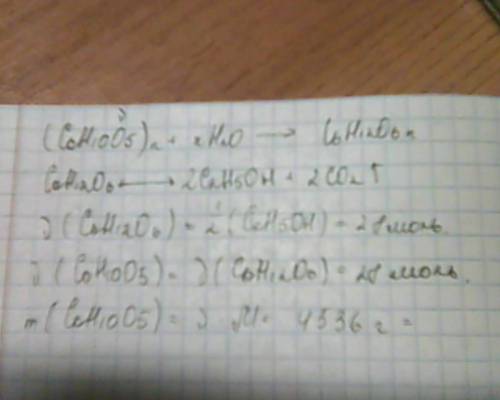 (C6H10O5)n + nH2O → C6H12O6n
C6H12O6 → 2C2H5OH + 2CO2↑
ν(C6H12O6) = 1/2(C2H5OH) = 28 моль.
ν(C6H10O5) = ν(C6H12O6) = 28 моль.
m(C6H10O5) = ν M = 4536 г =